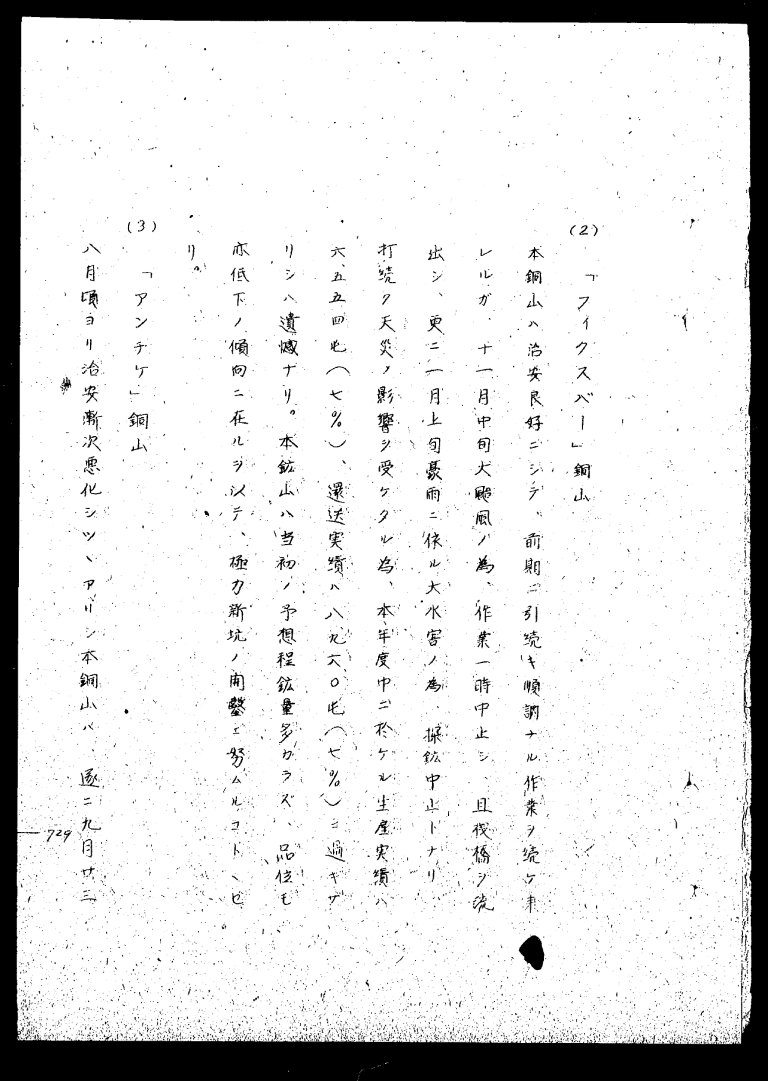 (2) 「フイクスバー」銅山
本銅山ハ治安良好ニシテ、前期ニ引続キ順調ナル作業ヲ続ケ来
レルガ、十一月中旬大颱風ノ為、作業一時中止シ、且桟橋ヲ流
出シ、更ニ一月上旬豪雨ニ依ル大水害ノ為、採鉱中止トナリ
打続ク天災ノ影響ヲ受ケタル為、本年度中ニ於ケル生産実績ハ
六、五五四屯（七％）、還送実績ハ八九六〇屯（七％）ニ過ギザ
リシハ遺憾ナリ。本鉱山ハ当初ノ予想程鉱量多カラズ、品位モ
亦低下ノ傾向ニ在ルヲ以テ、極力新坑ノ開鑿ニ努ムルコトヽセ
リ。
(3) 「アンチケ」銅山
八月頃ヨリ治安漸次悪化シツヽアリシ本銅山ハ、遂ニ九月廿三
729